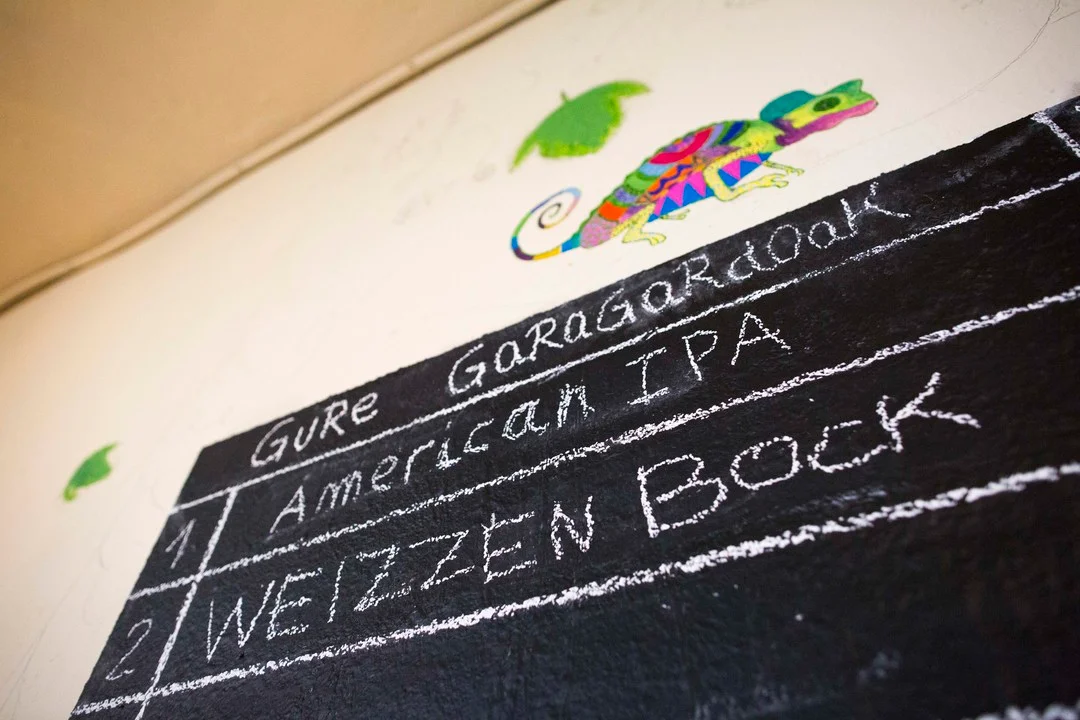 GuRe GaRaGaRdOaK
1 American IPA
2 WEIZZEN BOCK